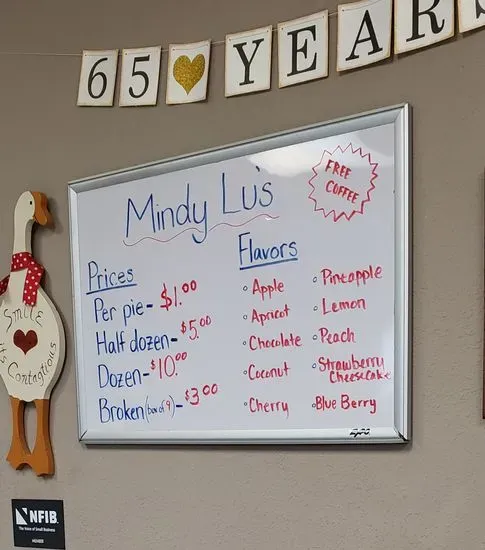 65 YEARS
Mindy Lu's
FREE
COFFEE
Prices
Per pie- $1.00
Half dozen- $5.00
Dozen- $10.00
Broken (box of 9)- $3.00
Flavors
Apple
Apricot
Chocolate
Coconut
Cherry
Pineapple
Lemon
Peach
Strawberry
Cheesecake
Blue Berry
SMILE
it's Contagious
NFIB
The Voice of Small Business
MEMBER